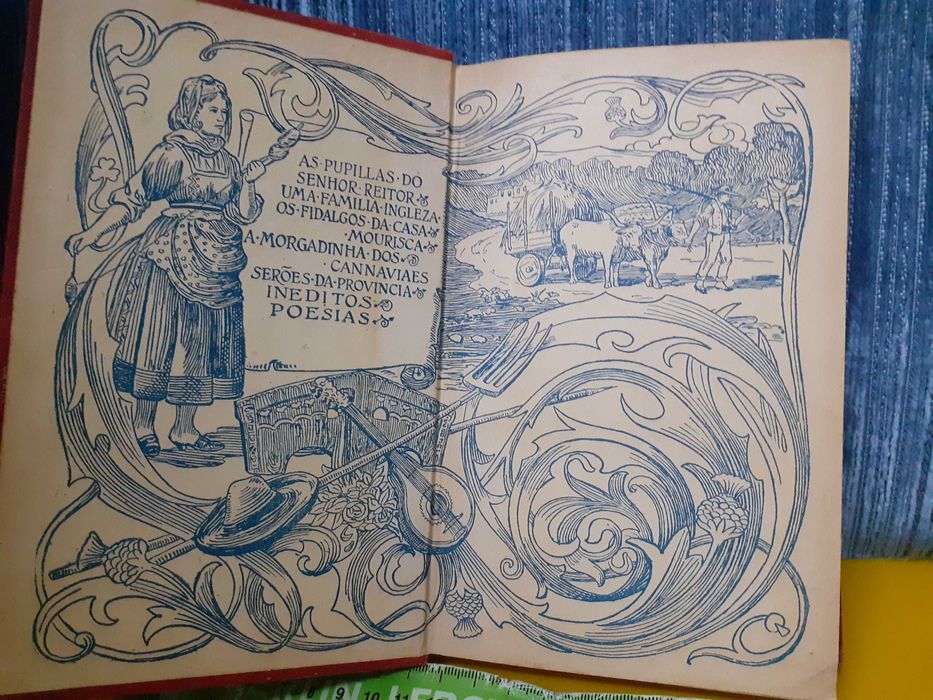 AS·PUPILLAS·DO
SENHOR·REITOR
UMA·FAMILIA·INGLEZA·
OS·FIDALGOS·DA·CASA·
·MOURISCA
A·MORGADINHA·DOS
·CANNAVIAES
SERÕES·DA·PROVINCIA·
INEDITOS
POESIAS
8 9 10 11